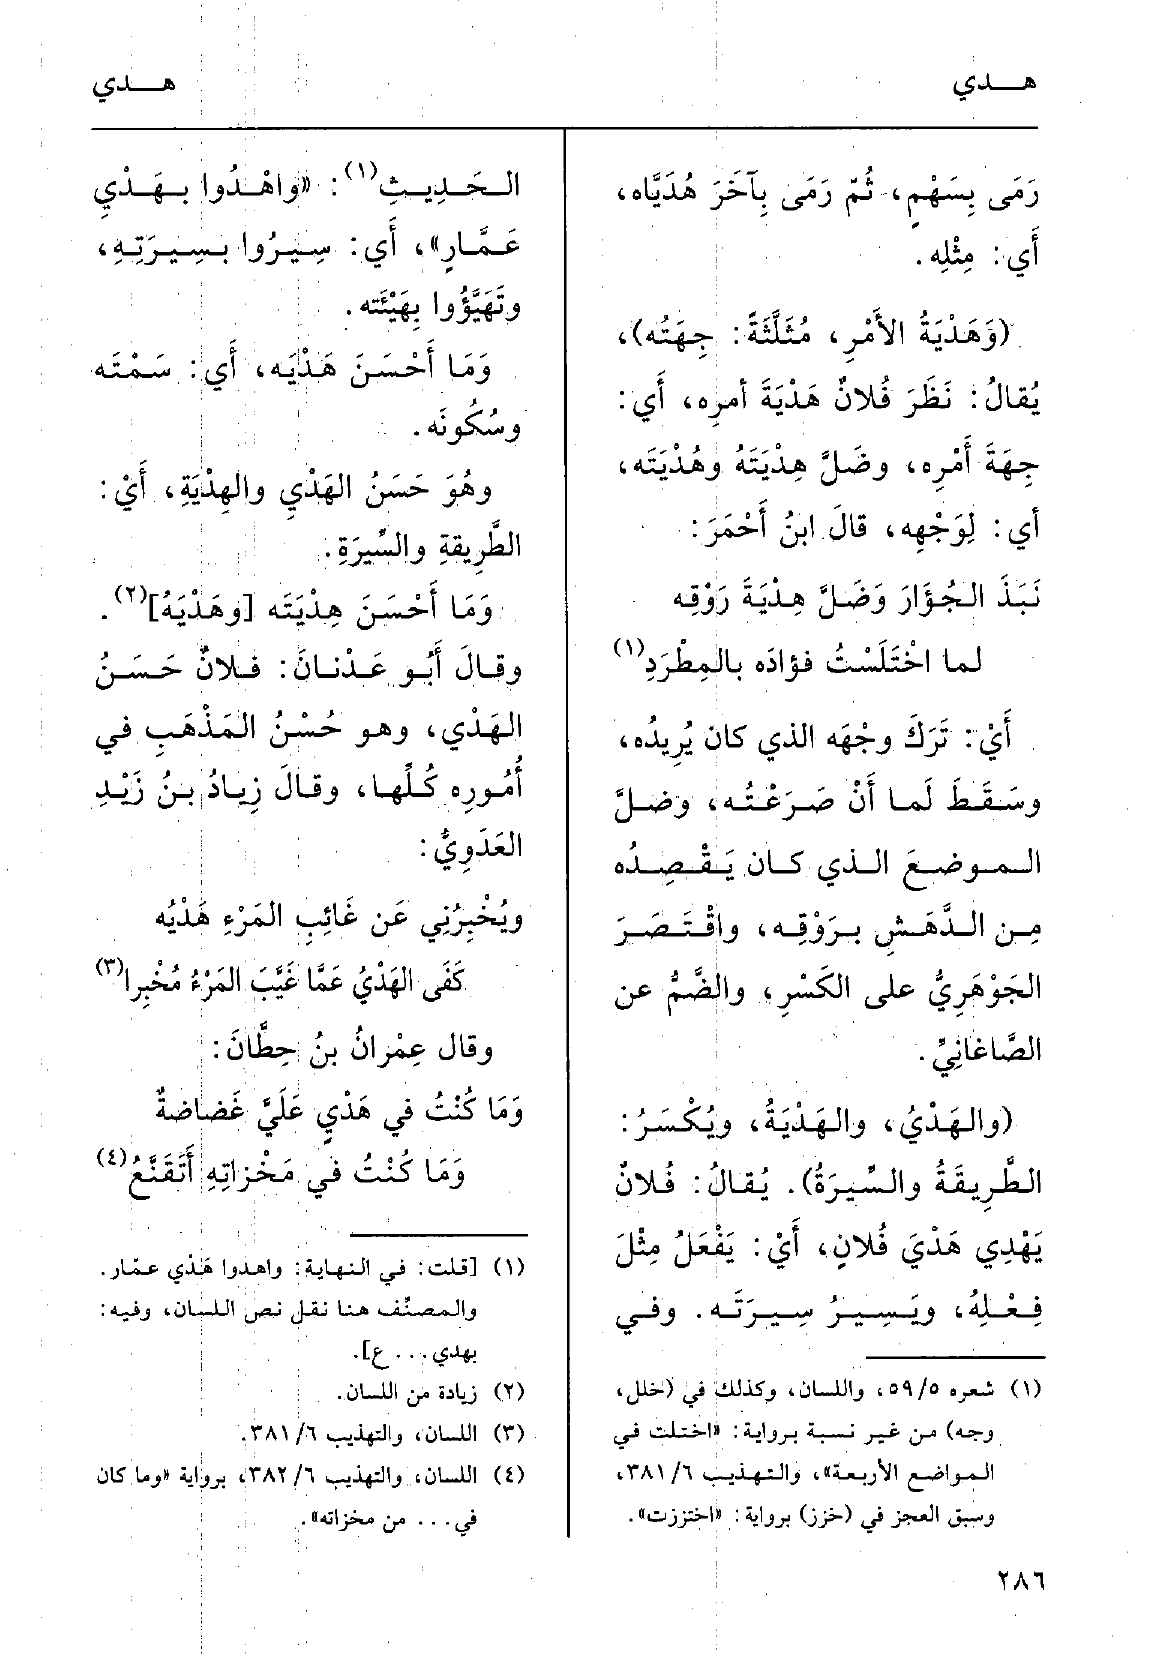 هـــدي
هـــدي
رَمَى بِسَهْمٍ، ثُمّ رَمَى بِآخَرَ هُدَيَّاه،
أَي: مِثْلِه.
(وَهَدْيَةُ الأَمْرِ، مُثَلَّثَةً: جِهَتُه)،
يُقالُ: نَظَرَ فُلانٌ هَدْيَةَ أمرِه، أَي:
جِهَةَ أَمْرِه، وضَلَّ هِدْيَتَهُ وهُدْيَتَه،
أي: لِوَجْهِه، قالَ ابنُ أَحْمَرَ:
نَبَذَ الجُؤَارَ وَضَلَّ هِدْيَةَ رَوْقِه
لما اخْتَلَسْتُ فؤادَه بالمِطْرَدِ(١)
أَيْ: تَرَكَ وجْهَه الذي كان يُرِيدُه،
وسَقَطَ لَما أَنْ صَرَعْتُه، وضلَّ
الموضعَ الذي كان يَقْصِدُه
مِن الدَّهَشِ بِرَوْقِه، واقْتَصَرَ
الجَوْهَرِيُّ على الكَسْرِ، والضَّمُّ عن
الصَّاغانِيِّ.
(والهَدْيُ، والهَدْيَةُ، ويُكْسَرُ:
الطَّرِيقَةُ والسِّيرَةُ). يُقالُ: فُلانٌ
يَهْدِي هَدْيَ فُلانٍ، أَيْ: يَفْعَلُ مِثْلَ
فِعْلِهُ، ويَسِيرُ سِيرَتَه. وفي
(١) شعره ٥٩/٥، واللسان، وكذلك في (خلل،
وجه) من غير نسبة برواية: «اختلت في
المواضع الأربعة»، والتهذيب ٣٨١/٦،
وسبق العجز في (خزز) برواية: «اختززت».
الحَدِيثِ(١): «واهْدُوا بهَدْيِ
عَمَّارٍ»، أَي: سِيرُوا بسِيرَتِهِ،
وتَهَيَّؤُوا بِهَيْئَته.
وَمَا أَحْسَنَ هَدْيَه، أَي: سَمْتَه
وسُكُونَه.
وهُوَ حَسَنُ الهَدْيِ والهِدْيَةِ، أَيْ:
الطَّرِيقةِ والسِّيرَةِ.
وَمَا أَحْسَنَ هِدْيَتَه [وهَدْيَهُ](٢).
وقالَ أَبُو عَدْنانَ: فلانٌ حَسَنُ
الهَدْي، وهو حُسْنُ المَذْهَبِ في
أُمُورِه كُلِّها، وقالَ زِيادُ بنُ زَيْدٍ
العَدَوِيُّ:
ويُخْبِرُنِي عَن غَائِبِ المَرْءِ هَدْيُه
كَفَى الهَدْيُ عَمَّا غَيَّبَ المَرْءُ مُخْبِرا(٣)
وقال عِمْرانُ بنُ حِطَّانَ:
وَمَا كُنْتُ في هَدْيٍ عَلَيَّ غَضاضةٌ
وَمَا كُنْتُ في مَخْزاتِهِ أَتَقَنَّعُ(٤)
(١) [قلت: في النهاية: واهدوا هَدْي عمّار.
والمصنِّف هنا نقل نص اللسان، وفيه:
بهدي... ع].
(٢) زيادة من اللسان.
(٣) اللسان، والتهذيب ٣٨١/٦.
(٤) اللسان، والتهذيب ٣٨٢/٦، برواية «وما كان
في... من مخزاته».
٢٨٦